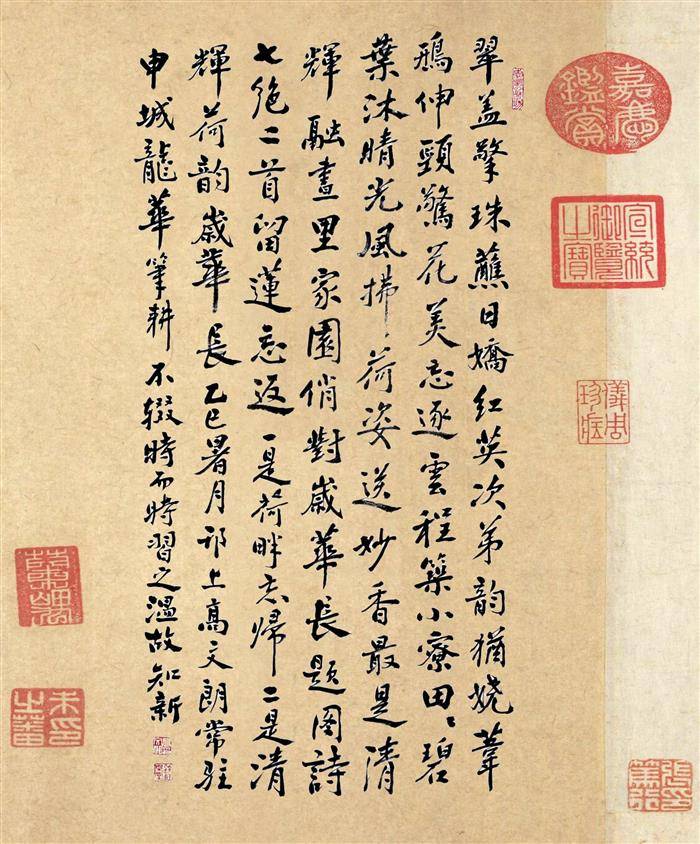 翠盖擎珠蘸日嬌红英次弟韵猶娆葦
鳽伸頸驚花美忘逐雲程築小寮田〻碧
葉沐晴光風拂荷姿送妙香最是清
輝融畫里家園俏對歲華長題图詩
七绝二首留蓮忘返一是荷畔忘歸二是清
輝荷韵歲華長乙巳暑月邗上高文朗常驻
申城龍華筆耕不辍時而時習之温故知新
嘉慶鑑賞
宣統御覽之寶
儀周珍藏
張印篤行
朱印之蕃